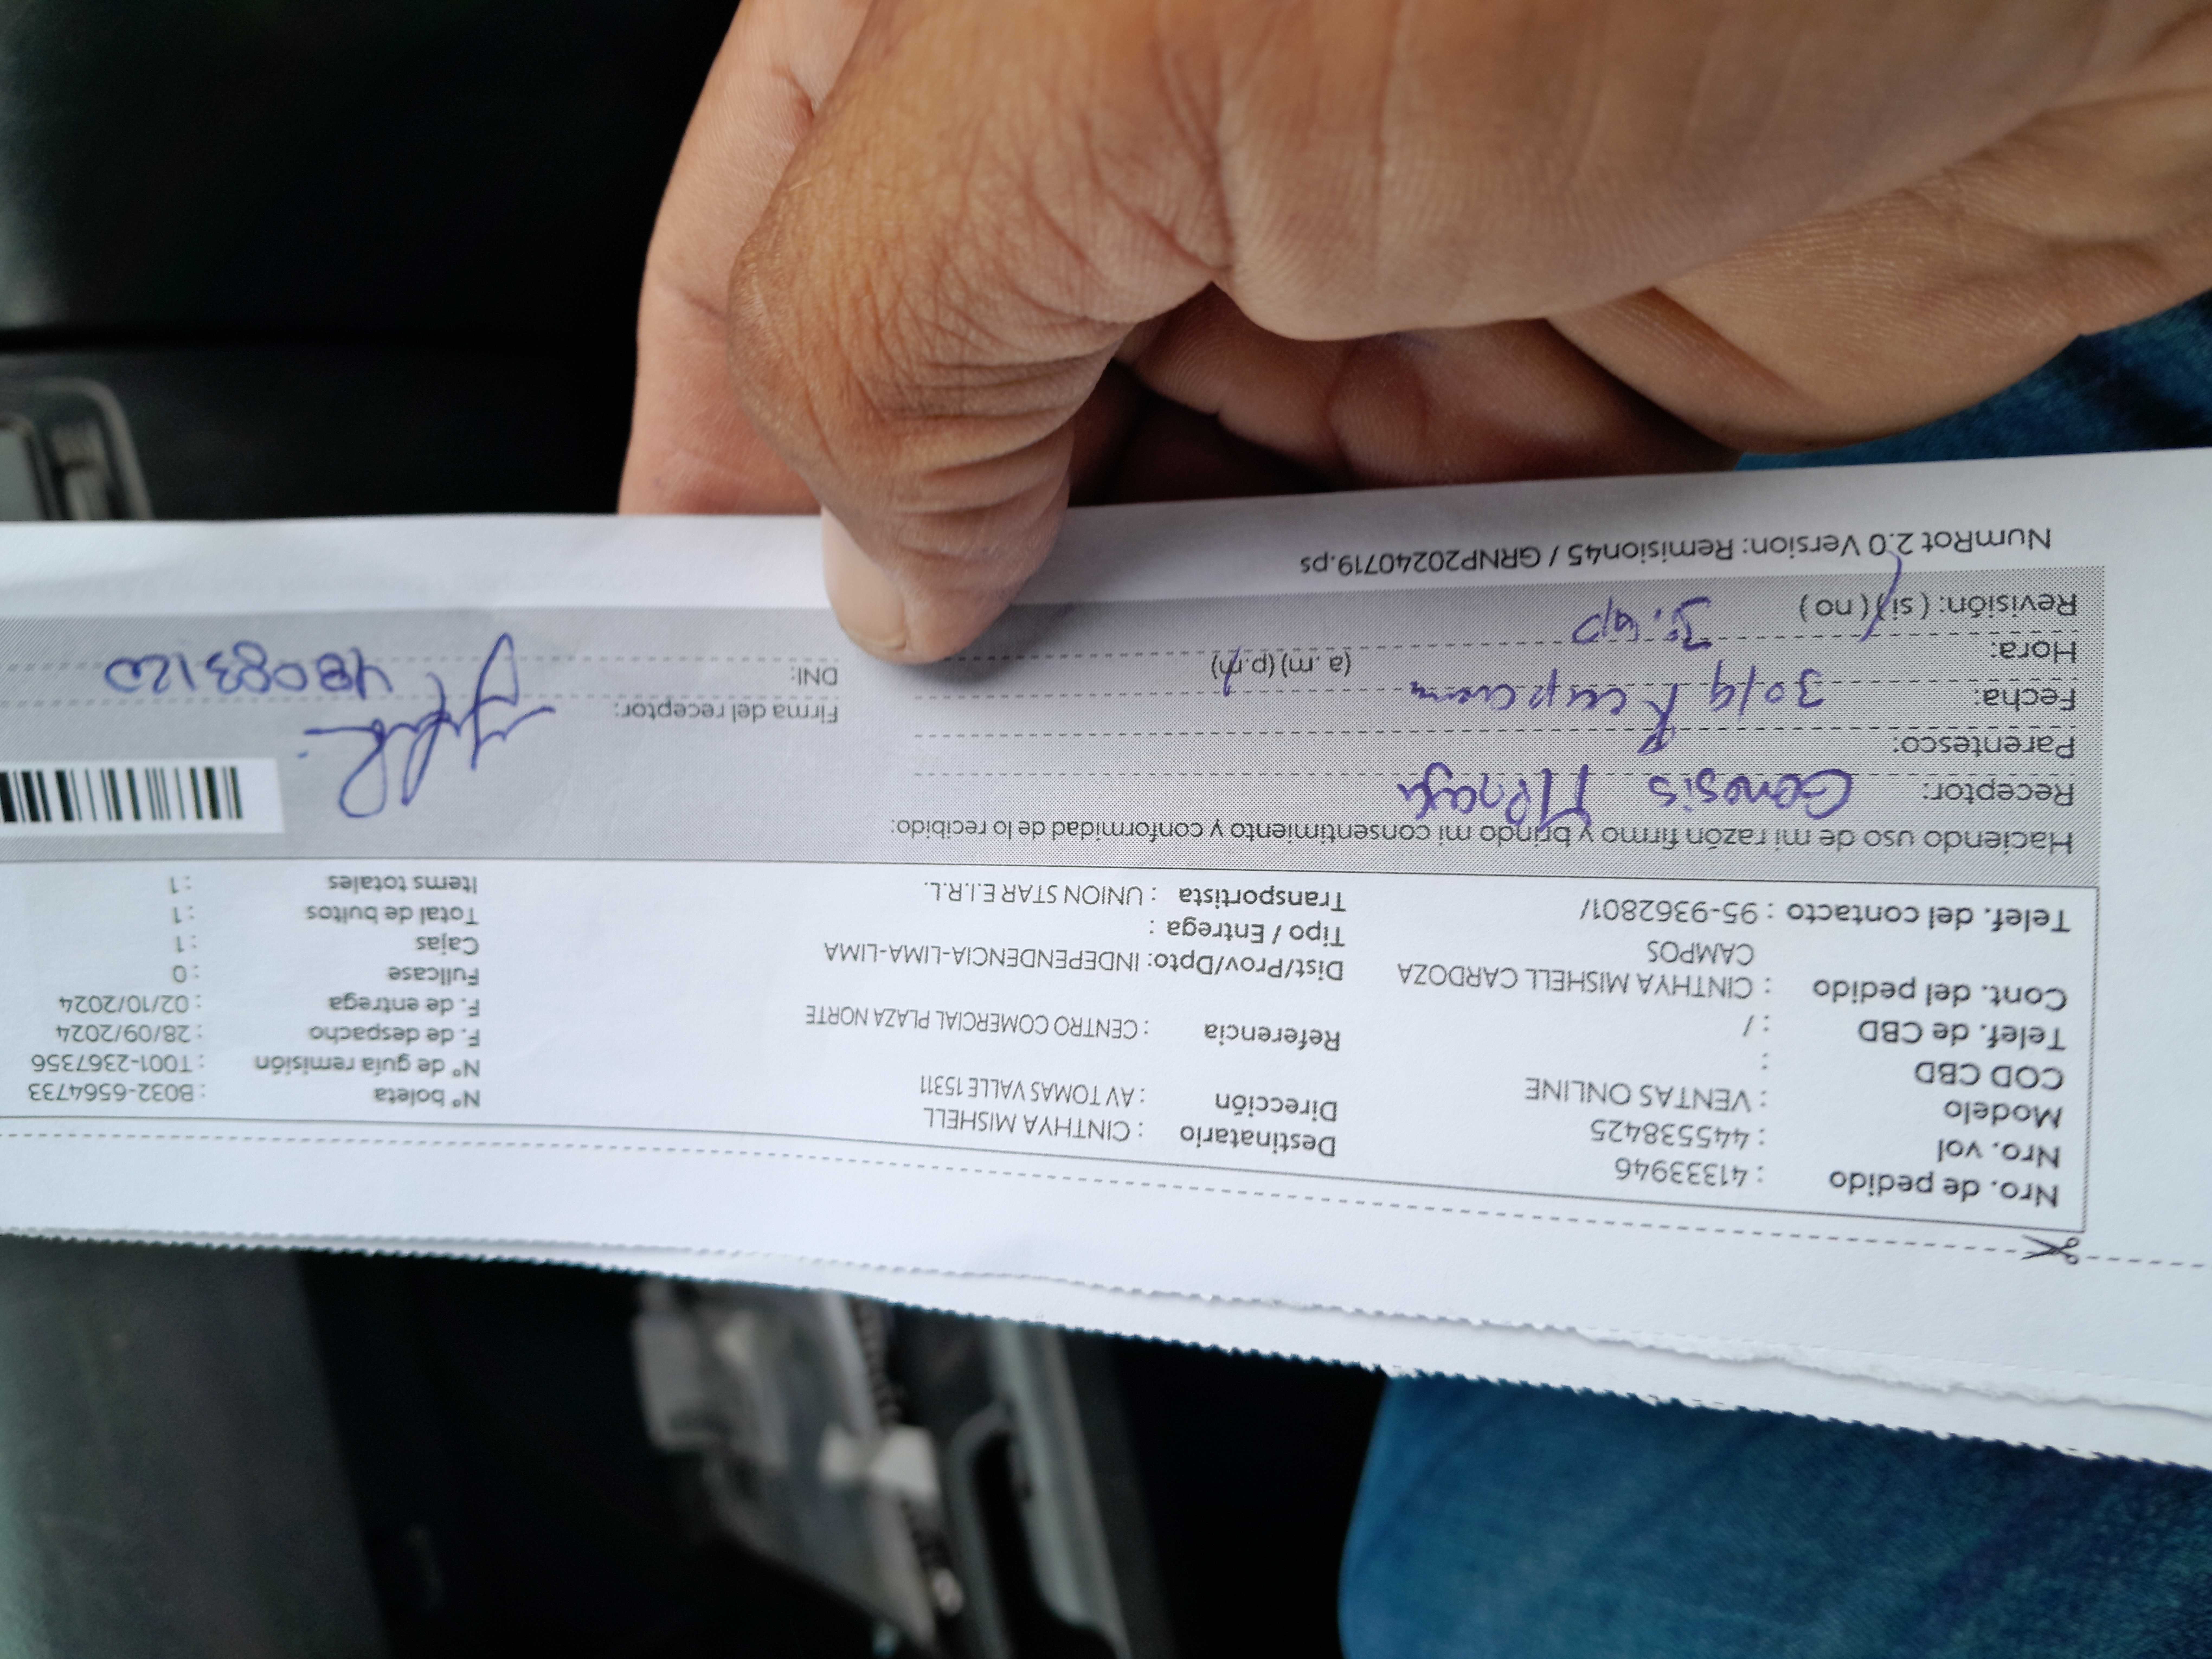 Nro. de pedido : 41333946
Nro. vol : 445538425
Modelo : VENTAS ONLINE
COD CBD :
Telef. de CBD : /
Cont. del pedido : CINTHYA MISHELL CARDOZA
CAMPOS
Telef. del contacto : 95-9362801/
Destinatario : CINTHYA MISHELL
Dirección : AV TOMAS VALLE 15311
Referencia : CENTRO COMERCIAL PLAZA NORTE
Dist/Prov/Dpto: INDEPENDENCIA-LIMA-LIMA
Tipo / Entrega :
Transportista : UNION STAR E.I.R.L.
Nº boleta : B032-6564733
Nº de guía remisión : T001-2367356
F. de despacho : 28/09/2024
F. de entrega : 02/10/2024
Fullcase : 0
Cajas : 1
Total de bultos : 1
Items totales : 1
Haciendo uso de mi razón firmo y brindo mi consentimiento y conformidad de lo recibido:
Receptor: Genesis
Parentesco:
Fecha: 30/9
Hora: (a. m) (p.m)
Revisión: (si) (no)
Firma del receptor:
DNI:
NumRot 2.0 Version: Remision45 / GRNP20240719.ps